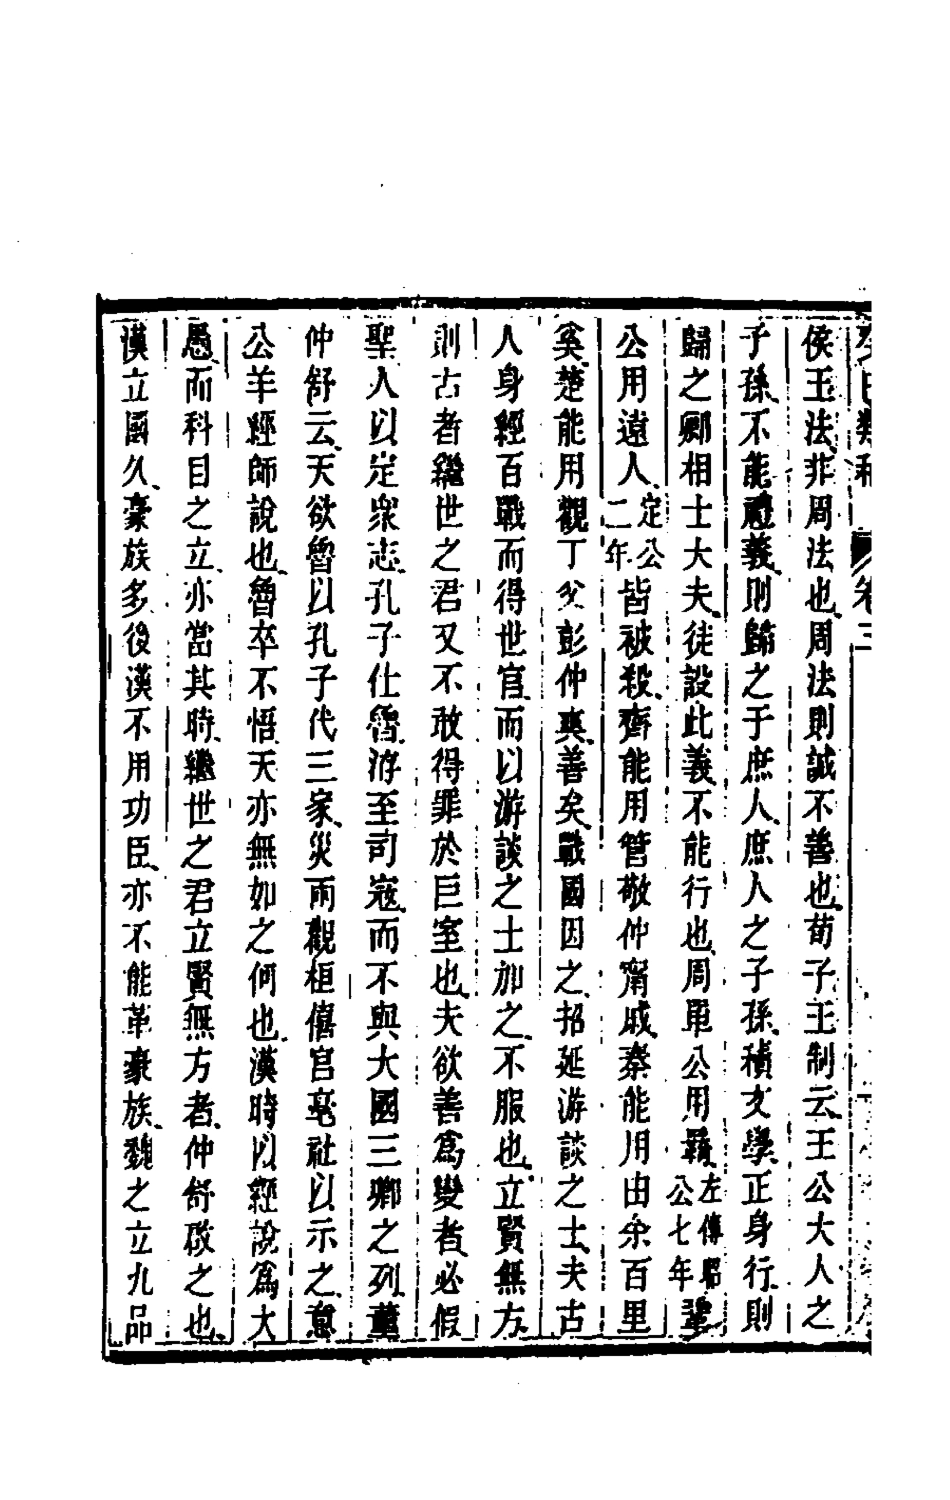 癸巳類稿 卷三
侯王法非周法也周法則誠不善也荀子王制云王公大人之
子孫不能禮義則歸之于庶人庶人之子孫積文學正身行則
歸之卿相士大夫徒設此義不能行也周單公用羈左傳昭公七年鞏
公用遠人定公二年皆被殺齊能用管敬仲甯戚秦能用由余百里
奚楚能用觀丁父彭仲爽善矣戰國因之招延游談之士夫古
人身經百戰而得世官而以游談之士加之不服也立賢無方
則古者繼世之君又不敢得罪於巨室也夫欲善為變者必假
聖人以定衆志孔子仕魯游至司寇而不與大國三卿之列董
仲舒云天欲魯以孔子代三家災兩觀桓僖宮亳社以示之意
公羊經師說也魯卒不悟天亦無如之何也漢時以經說爲大
愚而科目之立亦當其時繼世之君立賢無方者仲舒啟之也
漢立國久豪族多後漢不用功臣亦不能革豪族魏之立九品